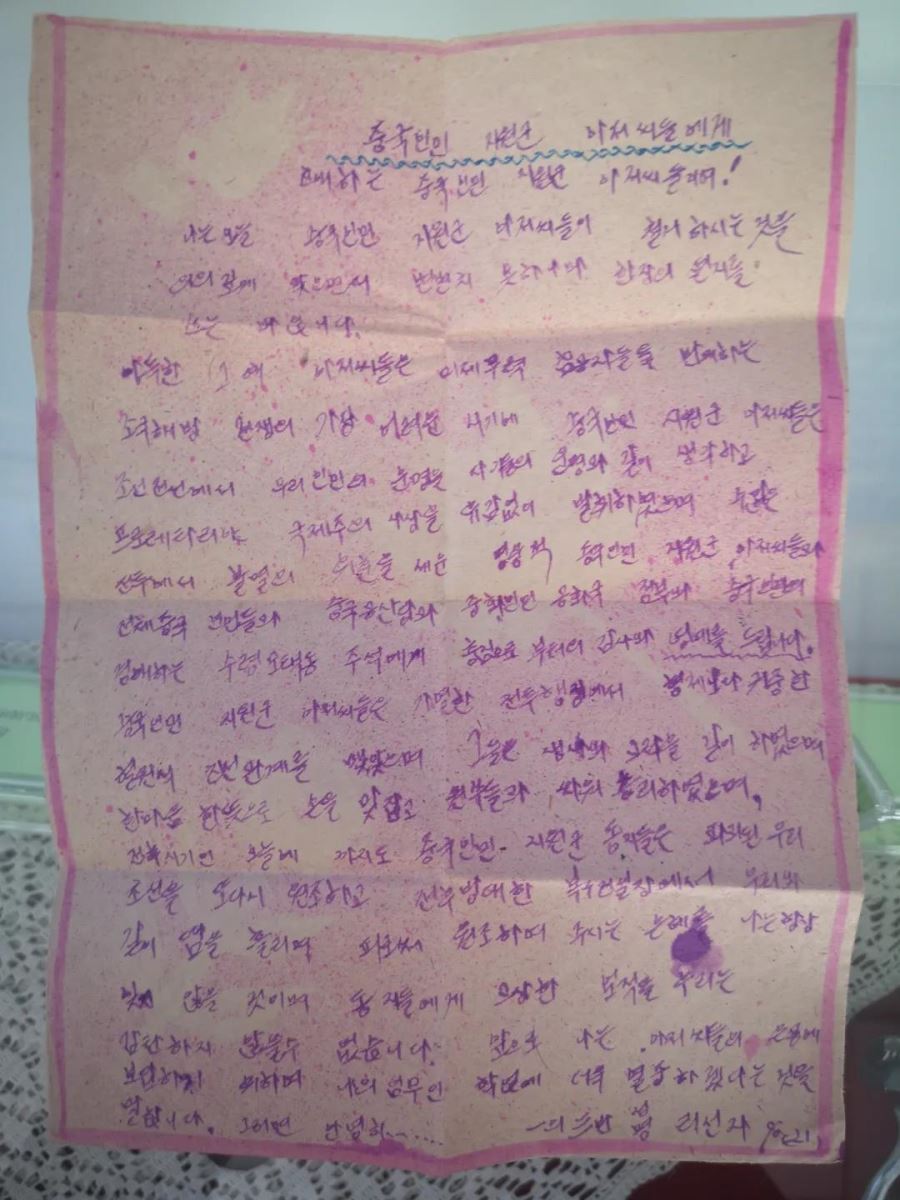 중국인민 지원군 아저씨들에게
친애하는 중국인민 지원군 아저씨들이여!
나는 오늘 중국인민 지원군 아저씨들이 철거 하시는 것을
맞으면서 한장의 편지를
쓰는 바 입니다.
그 때 아저씨들은 미제무력 반대하는
조국해방 전쟁의 가장 어려운 시기에 중국인민 지원군 아저씨들은
조선전선에서 우리 인민의 운명을 운명과 같이 생각하고
프로레타리아 국제주의 사상을 유감없이 발휘하였으며
전투에서 불멸의 위훈을 세운 영웅적 중국인민 지원군 아저씨들과
전체 중국 인민들과 중국공산당과 중화인민 공화국 정부와 중국인민의
경애하는 수령 모택동 주석에게 충심으로 부터의 감사와 영예를 드립니다.
중국인민 지원군 아저씨들은 가열한 전투행정에서 형제보다 귀중한
혈연적 친선 관계를 맺었으며 그들은 생사와 고락을 같이 하였으며
한마음 한뜻으로 손을 맞잡고 원쑤들과 싸워 승리하였으며,
오늘에 까지도 중국인민 지원군 동지들은 파괴된 우리
조선을 또다시 원조하고 전후 방대한 복구건설장에서 우리와
같이 땀을 흘리며 원조하여 주시는 은혜를 나는 항상
잊지 않을 것이며 동지들에게 고상한 우리는
감탄하지 않을수 없습니다. 앞으로 나는 아저씨들의 은공에
보답하기 위하여 나의 임무인 학업에 더욱 열중하겠다는 것을
말합니다. 그러면 안녕히......
리선자